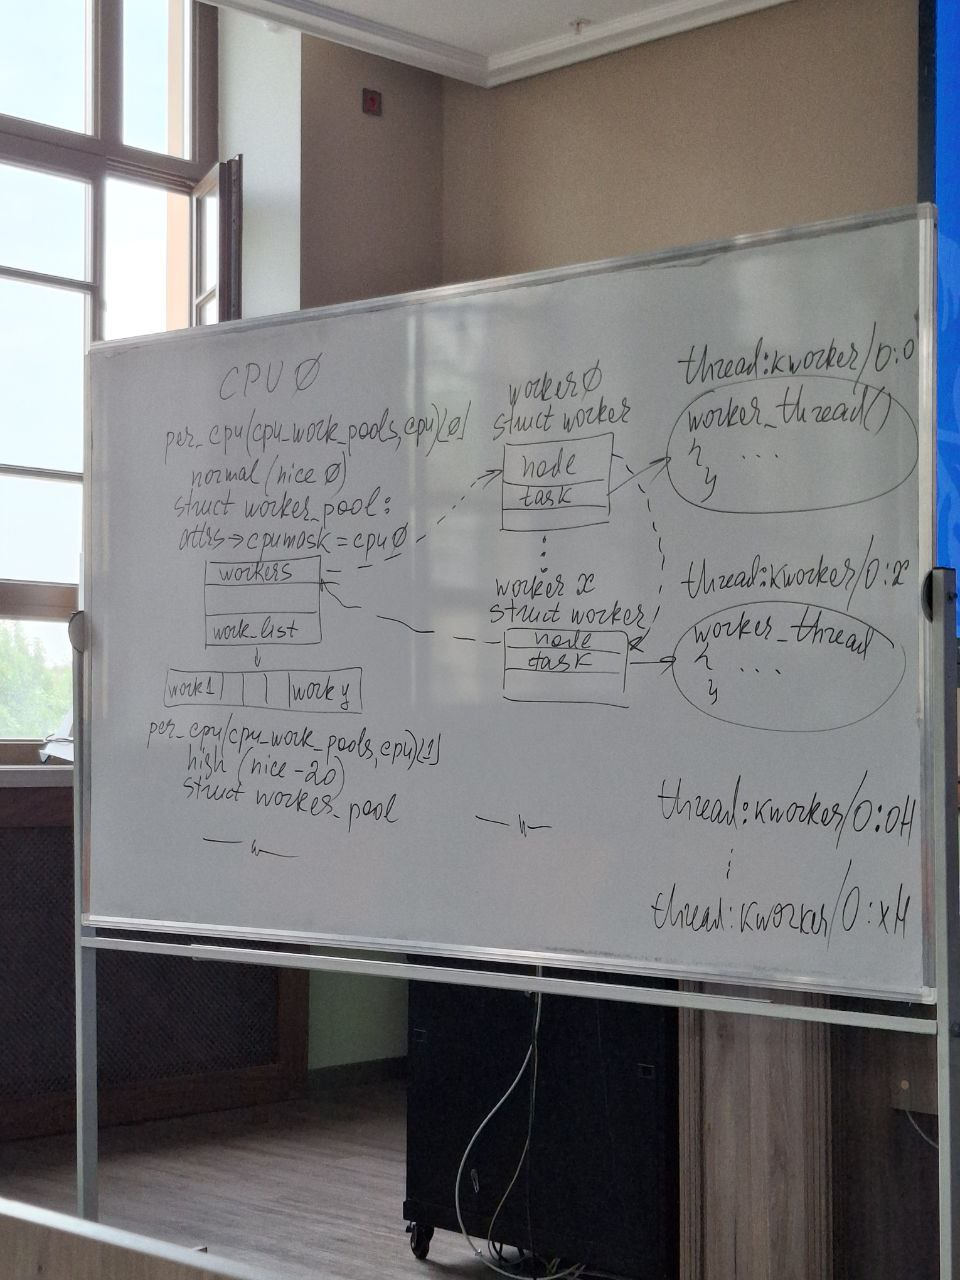 CPU 0
per_cpu(cpu_work_pools, cpu)[0]
normal (nice 0)
struct worker_pool:
attrs→cpumask = cpu 0
workers
work_list
work1
work y
per_cpu(cpu_work_pools, cpu)[1]
high (nice -20)
struct worker_pool
— " —
worker 0
struct worker
node
task
worker x
struct worker
node
task
— " —
thread:kworker/0:0
worker_thread()
{ ...
}
thread:kworker/0:x
worker_thread
{ ...
}
thread:kworker/0:0H
thread:kworker/0:xH